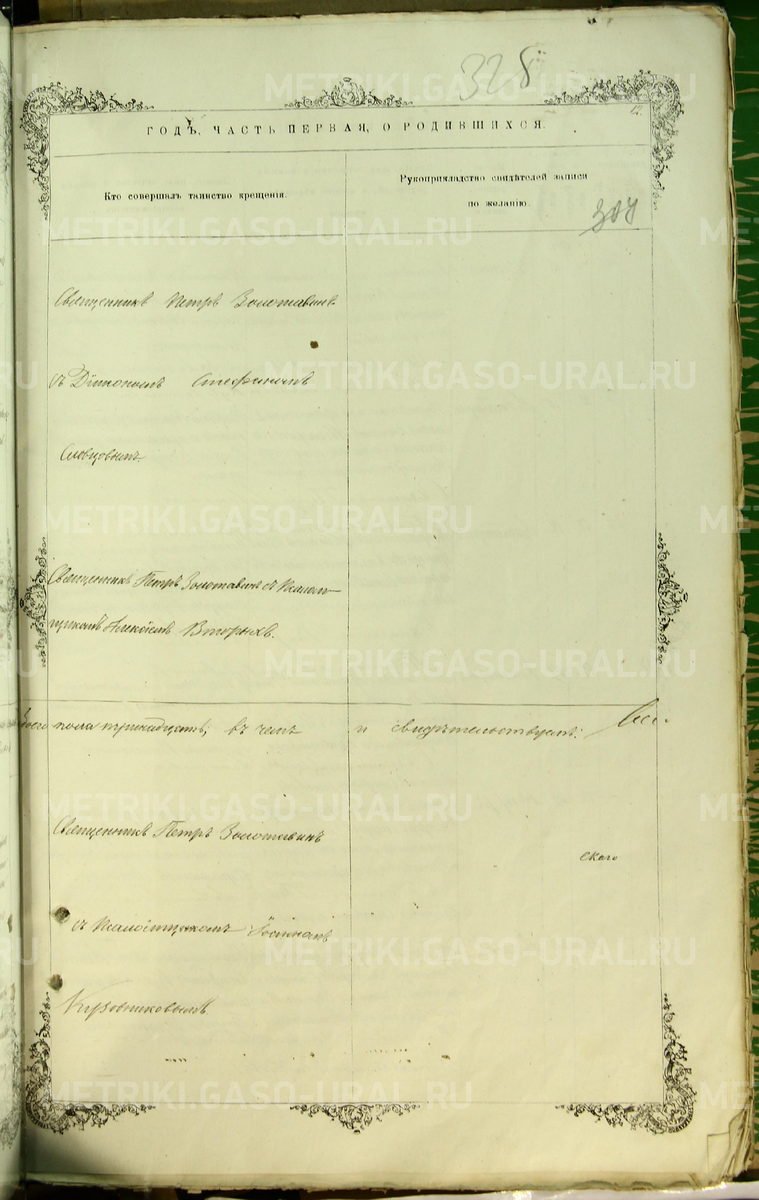 328
ГОДЪ, ЧАСТЬ ПЕРВАЯ, О РОДИВШИХСЯ.
Кто совершалъ таинство крещенія.
Рукоприкладство свидѣтелей записи
по желанію.
307
Священникъ Петръ Золотавинъ
съ Діакономъ Стефаномъ
Словцовымъ
Священникъ Петръ Золотавинъ съ Псалом-
щикомъ Алексіемъ Вторыхъ.
пола тринадцать, въ чемъ и свидѣтельствуемъ:
Священникъ Петръ Золотавинъ
съ Іоанномъ
скаго
METRIKI.GASO-URAL.RU